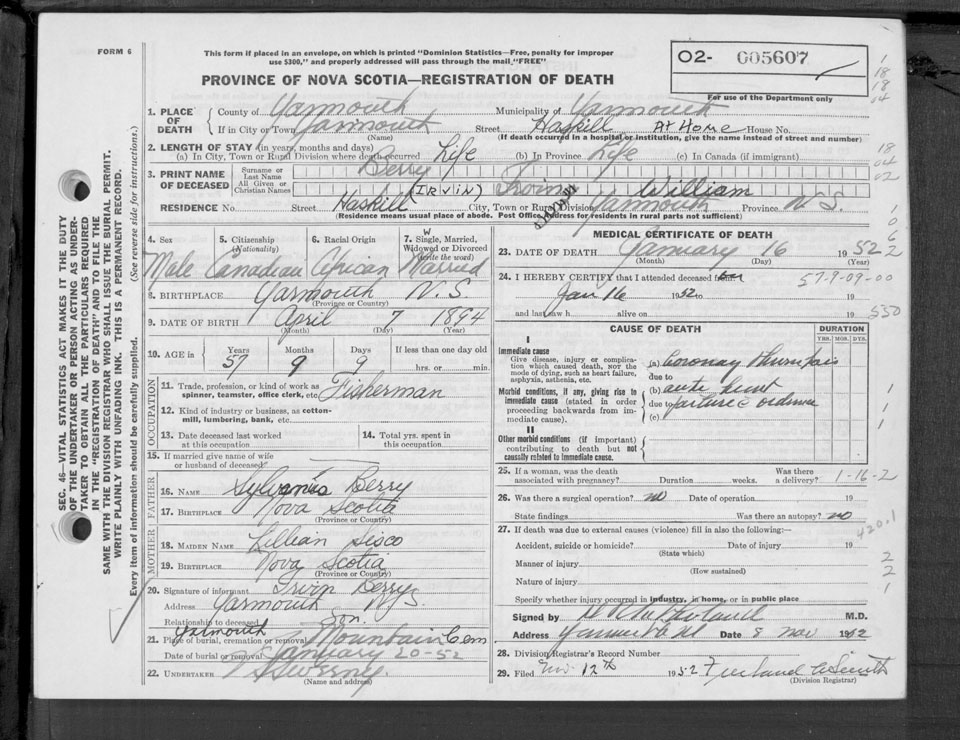 FORM 6
This form if placed in an envelope, on which is printed "Dominion Statistics—Free, penalty for improper
use $300," and properly addressed will pass through the mail "FREE"
O2- 005607
For use of the Department only
PROVINCE OF NOVA SCOTIA—REGISTRATION OF DEATH
1. PLACE OF DEATH { County of Yarmouth Municipality of Yarmouth
If in City or Town Yarmouth Street Haskill At Home House No.
(Name) (If death occurred in a hospital or institution, give the name instead of street and number)
2. LENGTH OF STAY (in years, months and days)
(a) In City, Town or Rural Division where death occurred Life (b) In Province Life (c) In Canada (if immigrant)
3. PRINT NAME OF DECEASED { Surname or Last Name Berry
All Given or Christian Names (IRVIN) Irvin William
RESIDENCE No. Street Haskill City, Town or Rural Division Yarmouth Province N.S.
(Residence means usual place of abode. Post Office Address for residents in rural parts not sufficient)
4. Sex 5. Citizenship (Nationality) 6. Racial Origin 7. Single, Married, Widowed or Divorced (write the word)
Male Canadian African Married
8. BIRTHPLACE Yarmouth N.S.
(Province or Country)
9. DATE OF BIRTH April 7 1894
(Month) (Day) (Year)
10. AGE in Years Months Days If less than one day old
57 9 9 hrs. or min.
OCCUPATION
11. Trade, profession, or kind of work as
spinner, teamster, office clerk, etc. Fisherman
12. Kind of industry or business, as cotton-
mill, lumbering, bank, etc.
13. Date deceased last worked at this occupation 14. Total yrs. spent in this occupation
15. If married give name of wife
or husband of deceased
FATHER
16. NAME Sylvanus Berry
17. BIRTHPLACE Nova Scotia
(Province or Country)
MOTHER
18. MAIDEN NAME Lillian Sisco
19. BIRTHPLACE Nova Scotia
(Province or Country)
20. Signature of informant Irvin Berry
Address Yarmouth N.S.
Relationship to deceased Son.
21. Place of burial, cremation or removal Yarmouth Mountain Cem
Date of burial or removal January 20-52
22. UNDERTAKER Sweeney.
(Name and address)
MEDICAL CERTIFICATE OF DEATH
23. DATE OF DEATH January 16 1952
(Month) (Day) (Year)
24. I HEREBY CERTIFY that I attended deceased from
57-9-09-00
Jan 16 1952 to 19
and last saw h alive on 19
CAUSE OF DEATH DURATION
YRS. MOS. DYS.
I
Immediate cause
Give disease, injury or complication which caused death, NOT the mode of dying, such as heart failure, asphyxia, asthenia, etc.
(a) Coronary
due to
Morbid conditions, if any, giving rise to immediate cause (stated in order proceeding backwards from immediate cause).
(b) acute heart
due to failure
(c)
II
Other morbid conditions (if important) contributing to death but not causally related to immediate cause.
25. If a woman, was the death associated with pregnancy? Duration weeks. Was there a delivery? 1-16-2
26. Was there a surgical operation? no Date of operation 19
State findings Was there an autopsy? no
27. If death was due to external causes (violence) fill in also the following:—
420.1
Accident, suicide or homicide? Date of injury 19
(State which)
Manner of injury
(How sustained)
Nature of injury
Specify whether injury occurred in industry, in home, or in public place
Signed by M.D.
Address Yarmouth Date 8 Nov 1952
28. Division Registrar's Record Number
29. Filed Nov 12th 1952
(Division Registrar)
SEC. 46—VITAL STATISTICS ACT MAKES IT THE DUTY
OF THE UNDERTAKER OR PERSON ACTING AS UNDER-
TAKER TO OBTAIN ALL THE PARTICULARS REQUIRED
IN THE "REGISTRATION OF DEATH" AND TO FILE THE
SAME WITH THE DIVISION REGISTRAR WHO SHALL ISSUE THE BURIAL PERMIT.
WRITE PLAINLY WITH UNFADING INK. THIS IS A PERMANENT RECORD.
Every item of information should be carefully supplied. (See reverse side for instructions.)